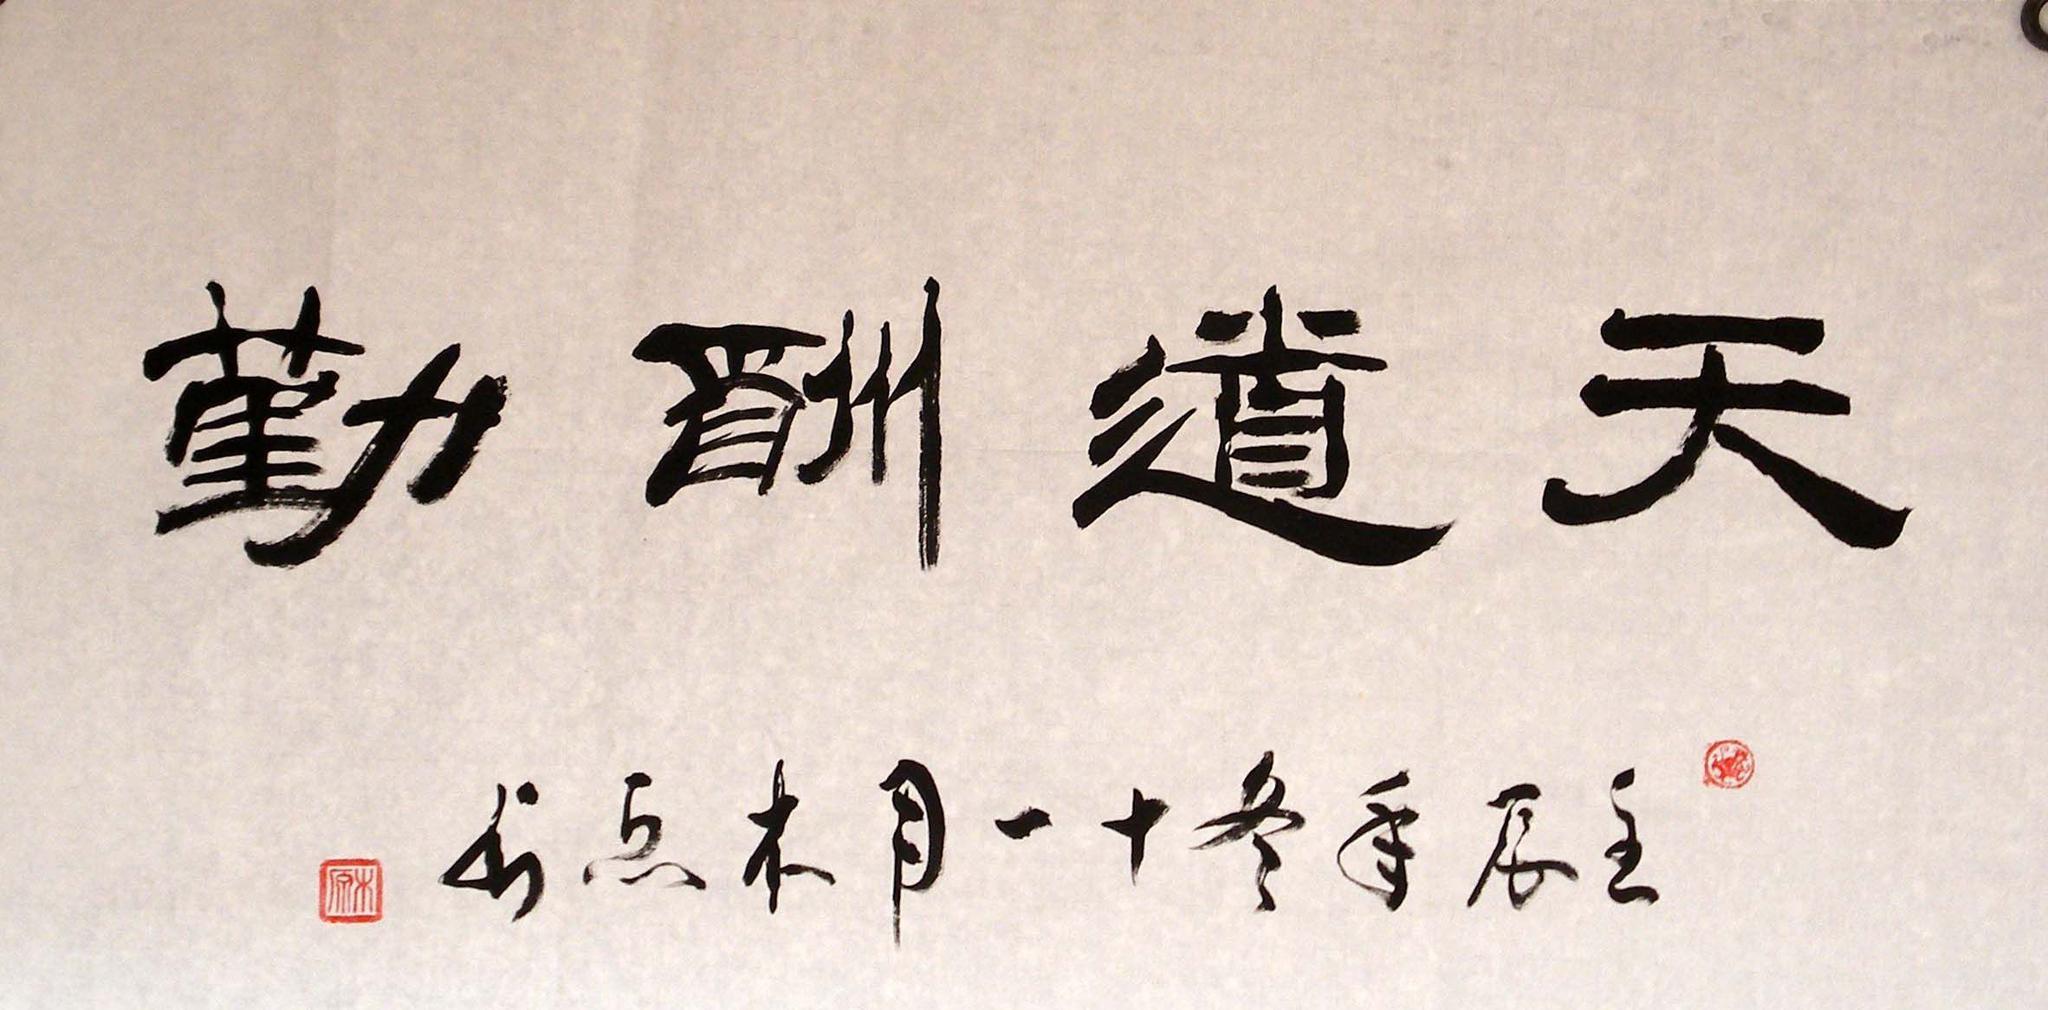 天道酬勤
壬辰年冬十一月木原书
木原